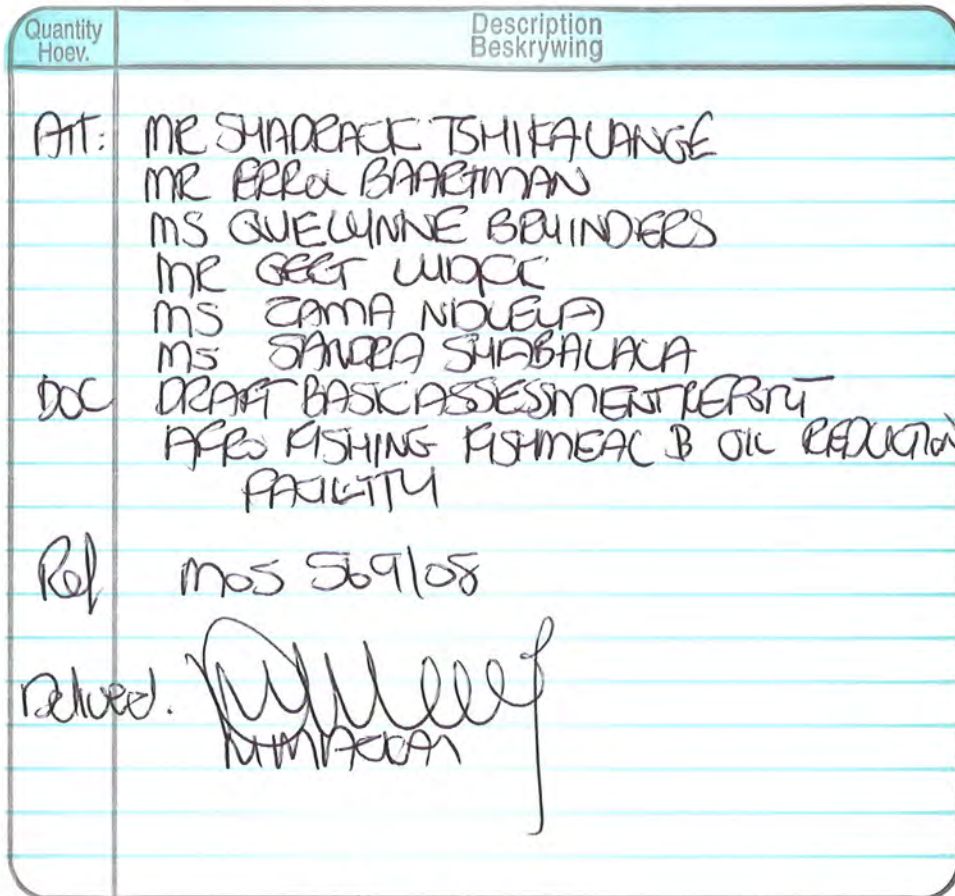 Quantity Description
Hoev. Beskrywing
Att: MR SHADRACK TSHIKALANGE
MR ERROL BAARTMAN
MS QUELYNNE BEUINDERS
MR GERT
MS ZAMA NDLELA
MS SANDRA SHABALALA
DOC DRAFT BASIC ASSESSMENT REPORT
AFRO FISHING FISHMEAL & OIL REDUCTION
FACILITY
Ref MOS 569/08
Delivered.